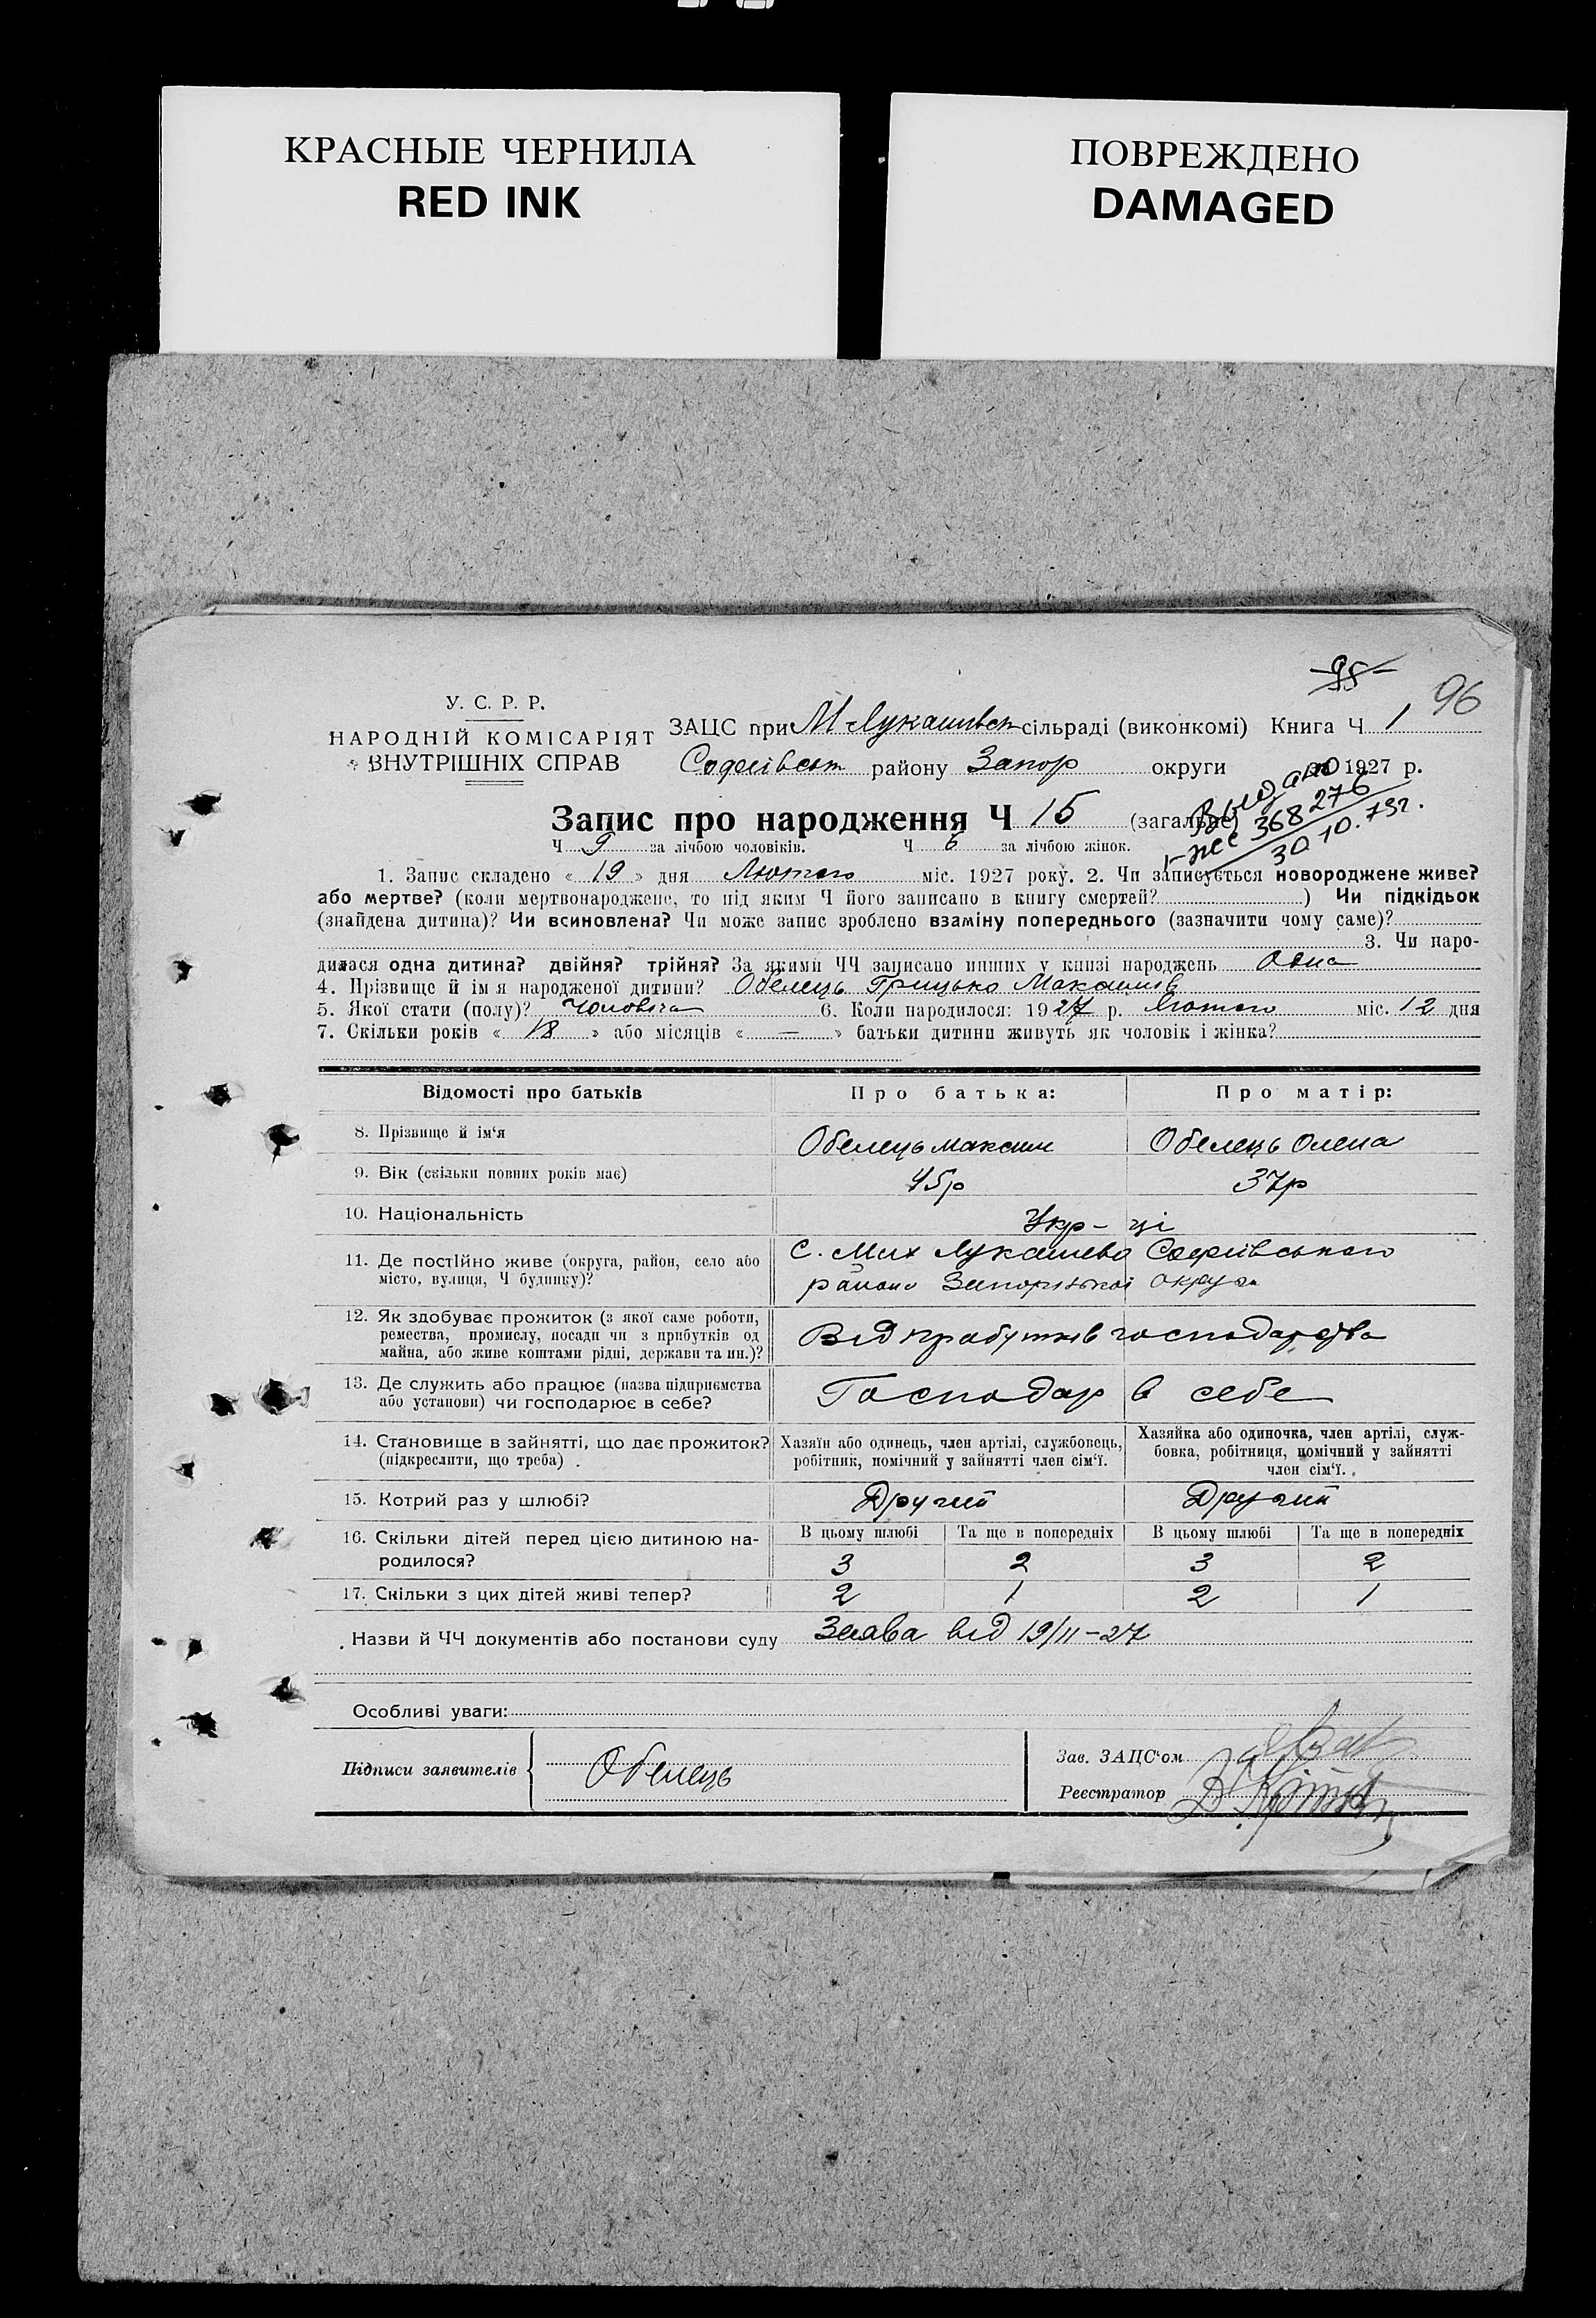 КРАСНЫЕ ЧЕРНИЛА
RED INK
ПОВРЕЖДЕНО
DAMAGED
95
96
У. С. Р. Р.
НАРОДНІЙ КОМІСАРІЯТ
ВНУТРІШНІХ СПРАВ
ЗАЦС при М Лукашивськ сільраді (виконкомі) Книга Ч 1
Софиівськ району Запор округи на 1927 р.
Выдано
368276
30.10.73г.
Запис про народження Ч 15 (загальне)
Ч 9 за лічбою чоловіків. Ч 6 за лічбою жінок.
1. Запис складено « 19 » дня Лютого міс. 1927 року. 2. Чи записується новороджене живе?
або мертве? (коли мертвонароджене, то під яким Ч його записано в книгу смертей? ) Чи підкідьок
(знайдена дитина)? Чи всиновлена? Чи може запис зроблено взаміну попереднього (зазначити чому саме)?
3. Чи наро-
дилася одна дитина? двійня? трійня? За якими ЧЧ записано инших у книзі народжень Одна
4. Прізвище й ім я народженої дитини? Обелець Грицько Максимів
5. Якої стати (полу)? Чоловіча 6. Коли народилося: 1927 р. Лютого міс. 12 дня
7. Скільки років « 18 » або місяців « — » батьки дитини живуть як чоловік і жінка?
Відомості про батьків
Про батька:
Про матір:
8. Прізвище й ім‘я
Обелець Максим
Обелець Олена
9. Вік (скільки повних років має)
45р
37р
10. Національність
Укр-ці
11. Де постійно живе (округа, район, село або
місто, вулиця, Ч будинку)?
с. Мих Лукашево Софиівського
району Запоріжської округи
12. Як здобуває прожиток (з якої саме роботи,
ремества, промислу, посади чи з прибутків од
майна, або живе коштами рідні, держави та ин.)?
Від прибутків господарства
13. Де служить або працює (назва підприємства
або установи) чи господарює в себе?
Господар в себе
14. Становище в зайнятті, що дає прожиток?
(підкреслити, що треба)
Хазяїн або одинець, член артілі, службовець,
робітник, помічний у зайнятті член сім‘ї.
Хазяйка або одиночка, член артілі, служ-
бовка, робітниця, помічний у зайнятті
член сім‘ї.
15. Котрий раз у шлюбі?
Другий
Другий
16. Скільки дітей перед цією дитиною на-
родилося?
В цьому шлюбі Та ще в попередніх В цьому шлюбі Та ще в попередніх
3 2 3 2
17. Скільки з цих дітей живі тепер?
2 1 2 1
Назви й ЧЧ документів або постанови суду Заява від 19/II-27
Особливі уваги:
Підписи заявителів
Обелець
Зав. ЗАЦС‘ом
Реєстратор